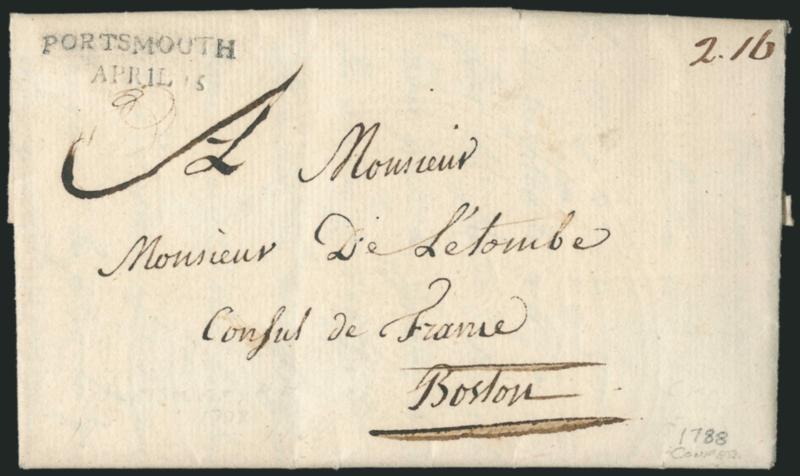 PORTSMOUTH
APRIL 15
2.16
A Monsieur
Monsieur De Létombe
Consul de France
Boston
1788